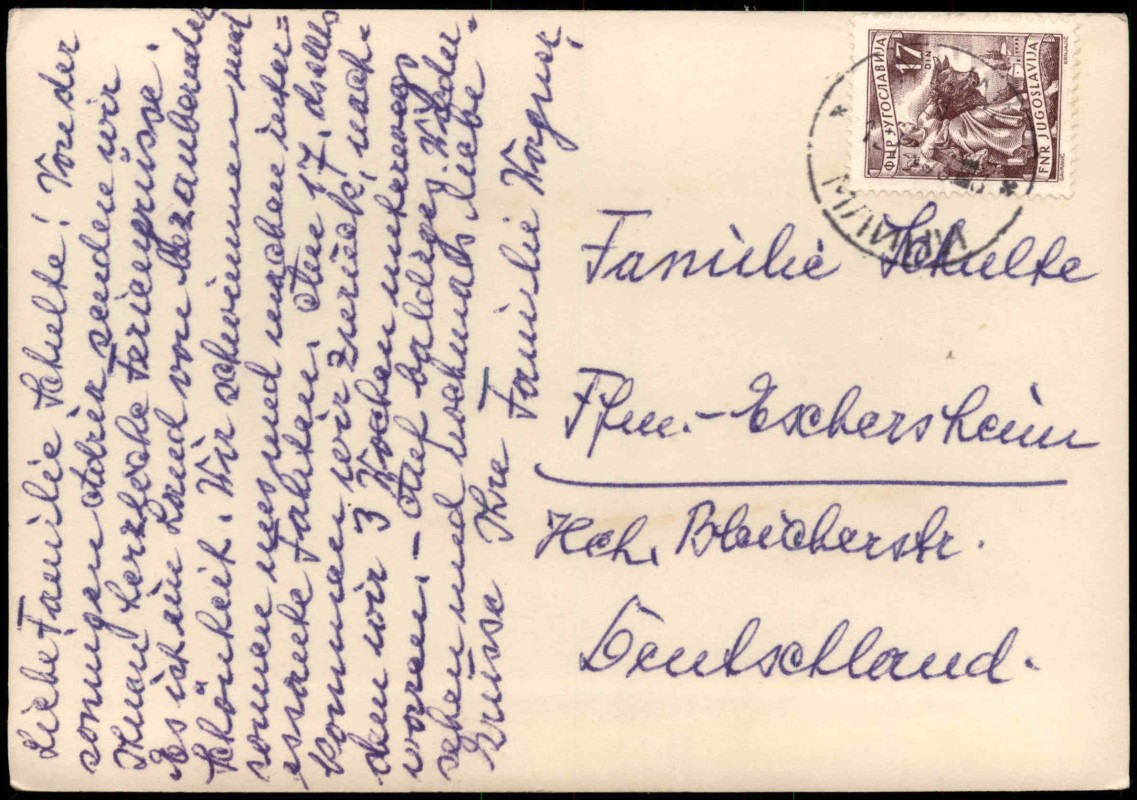 Liebe Familie Schulte! Von der
sonnigen Adria senden wir
Ihnen herzliche Feriengrüsse.
Es ist ein Land von bezaubernder
Schönheit. Wir schwimmen und
sonnen uns und machen inter=
essante Fahrten. Am 17. ds.
kommen wir zurück, nach-
dem wir 3 Wochen unterwegs
waren. – Auf baldiges Wieder-
sehen und nochmals liebe
Grüsse Ihre Familie Wagner.
ФНР ЈУГОСЛАВИЈА
17
DIN
FNR JUGOSLAVIJA
Familie Schulte
Ffm.-Eschersheim
Hch. Bleicherstr.
Deutschland.